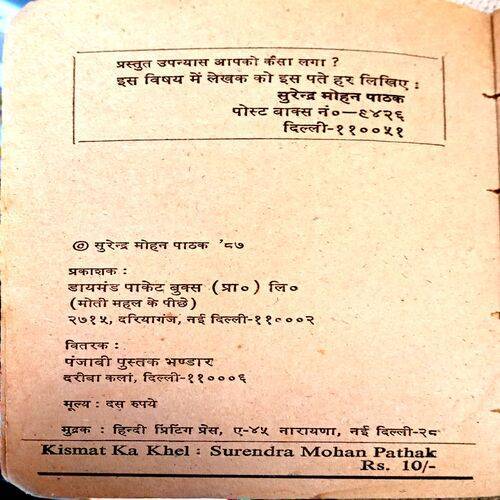 प्रस्तुत उपन्यास आपको कैसा लगा ?
इस विषय में लेखक को इस पते हर लिखिए :
सुरेन्द्र मोहन पाठक
पोस्ट बाक्स नं०—९४२६
दिल्ली-११००५१
© सुरेन्द्र मोहन पाठक '८७
प्रकाशक :
डायमंड पाकेट बुक्स (प्रा०) लि०
(मोती महल के पीछे)
२७१५, दरियागंज, नई दिल्ली-११०००२
वितरक :
पंजाबी पुस्तक भण्डार
दरीबा कलां, दिल्ली-११०००६
मूल्य : दस रुपये
मुद्रक : हिन्दी प्रिटिंग प्रेस, ए-४५ नारायणा, नई दिल्ली-२८
Kismat Ka Khel : Surendra Mohan Pathak
Rs. 10/-